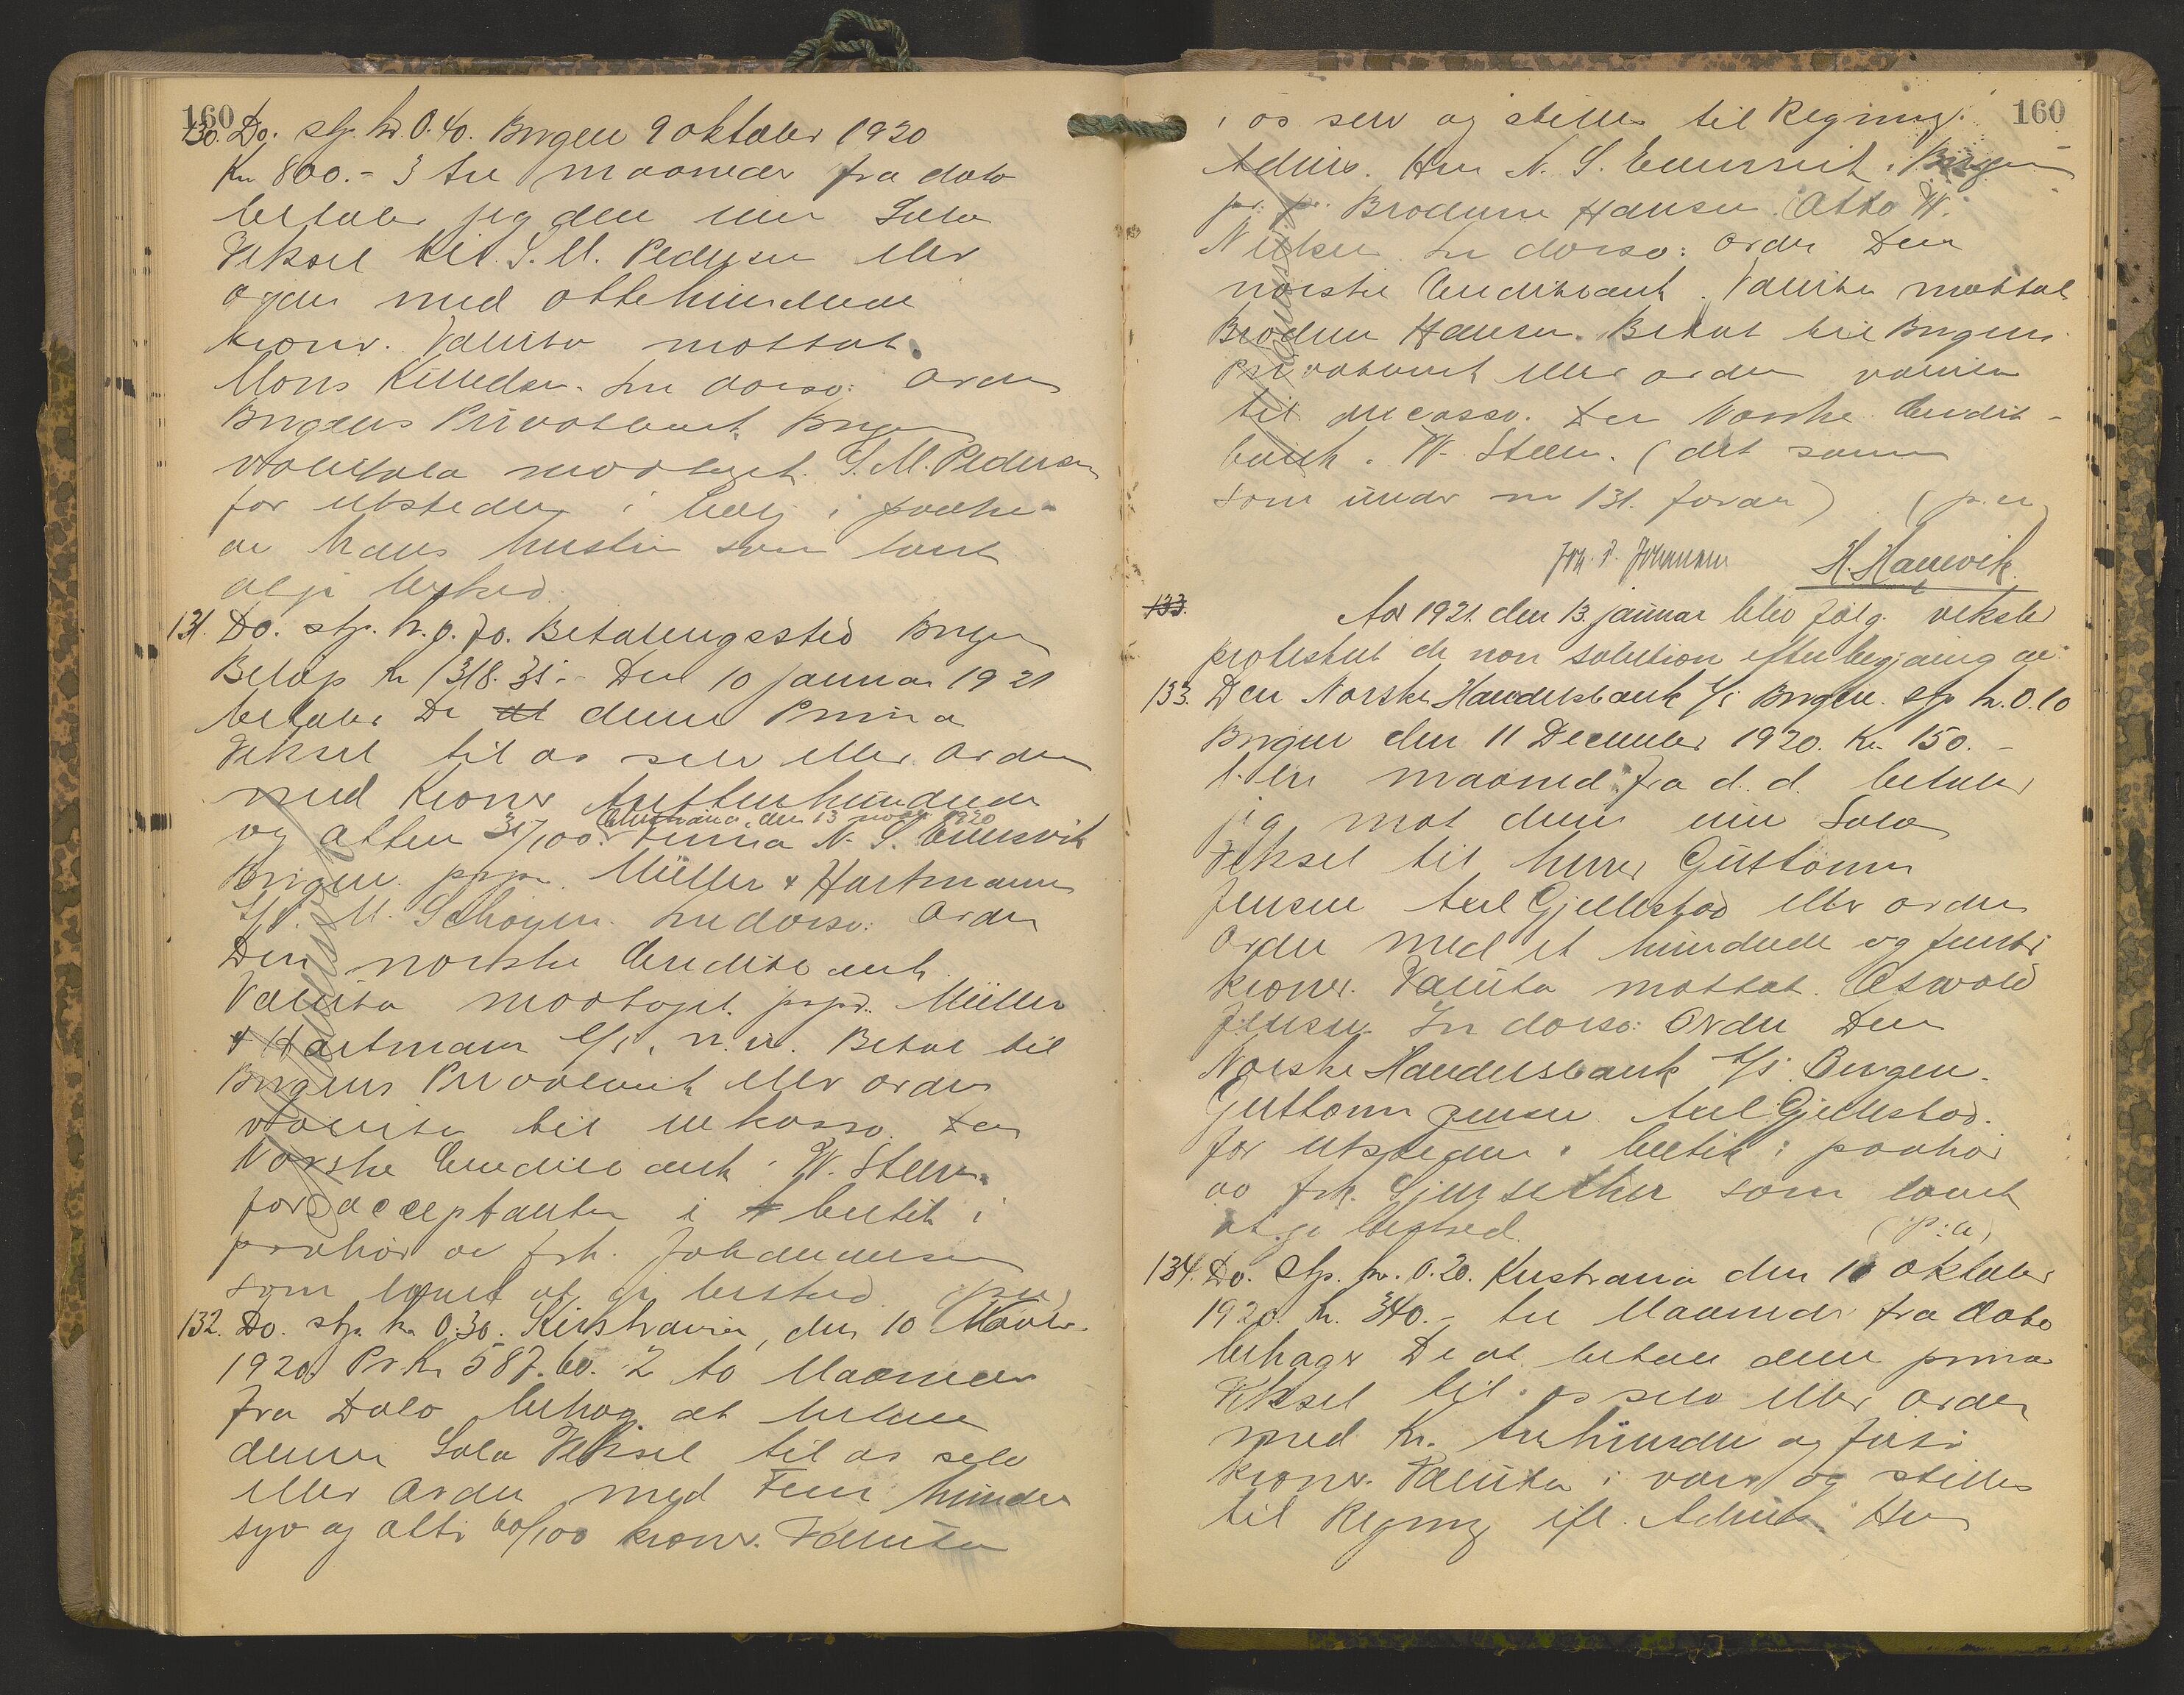 160
130. Do. stp. kr. 0.40. Bergen 9 oktober 1920
Kr 800.- 3 tre maaneder fra dato
betaler jeg denne min Sola
Veksel til S. M. Pedersen eller
ordre med ottehundrede
kroner. Valuta mottat.
Mons Knudsen. In dorso: Ordre
Bergens Privatbank Bergen
valuta modtaget. S. M. Pedersen
for utstederen i bolig i paahør
av hans hustru som lovet
at gi besked.
131. Do. stp. kr. 0.70. Betalingssted Bergen
Beløp kr 1318.35.- Den 10 januar 1921
betaler De denne Prima
Veksel til os selv eller ordre
med Kroner Trettenhundrede
Christiania, den 13 novbr 1920
og atten 35/100. Firma N. S. Eunsvik
Bergen. prpr. Müller & Hartmann
A/S. M. Schøyen. In dorso: Ordre
Den norske Creditbank.
Valuta modtaget. prpr. Müller
& Hartmann A/S, n.n. Betal til
Bergens Privatbank eller ordre
Valuta til inkasso. Den
Norske Creditbank. W. Steen.
for acceptanten i butik i
paahør av frk. Johannesen
som lovet at gi besked. (p.a)
132. Do. stp. kr 0.30. Kristiania, den 10 Novbr.
1920. Pr Kr 587.60. 2 to Maaneder
fra Dato behag at betale
denne Sola Veksel til os selv
eller Ordre med Fem hundre
syv og otti 60/100 kroner. Valuta
160
i os selv og stilles til Regning.
Adris. Herr N. S. Eunsvik. Bergen
pr. pr. Brødrene Hansen. Otto W.
Nilsen. In dorso: Ordre Den
norske Creditbank. Valuta mottat
Brødrene Hansen. Betal til Bergens
Privatbank eller ordre valuta
til incasso. Den Norske Credit-
bank. W. Steen. (det samme
som under nr 131. foran) (p.a)
Joh. P. Johannesen H. Hauvik
133.
Aar 1921. den 13. januar blev følg. veksler
protestert de non solution efter begjæring av:
133. Den Norske Handelsbank A/S Bergen. stp kr. 0.10
Bergen den 11 December 1920. Kr. 150.-
1. en maaned fra d. d. betaler
jeg mot denne min Sola
Veksel til herrer Guttorm
Jensen Axel Gjellestad eller ordre
Ordre med et hundrede og femti
kroner. Valuta mottat. Oswald
Jensen. In dorso: Ordre Den
Norske Handelsbank A/S. Bergen.
Guttorm Jensen Axel Gjellestad.
for utstederen i butik i paahør
av frk. Gjersether som lovet
at gi besked. (p.a)
134. Do. stp. kr. 0.20. Kristiania den 11 oktober
1920. kr. 340.- tre Maaneder fra dato
behager De at betale denne prima
Veksel til os selv eller ordre
med Kr. trehundre og firti
kroner. Valuta i varer og stilles
til Regning ifl. Advis. Herr